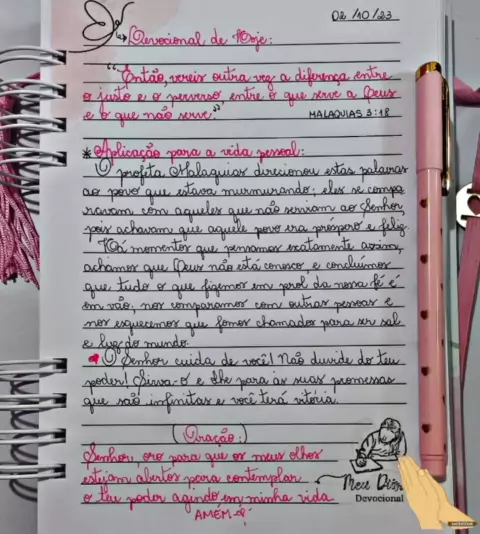 02/10/23
Devocional de Hoje:
"Então, vereis outra vez a diferença entre
o justo e o perverso, entre o que serve a Deus
e o que não serve."
MALAQUIAS 3:18
*Aplicação para a vida pessoal:
O profeta Malaquias direcionou estas palavras
ao povo que estava murmurando; eles se compa
ravam com aqueles que não serviam ao Senhor,
pois achavam que aquele povo era próspero e feliz.
Há momentos que pensamos exatamente assim,
achamos que Deus não está conosco, e concluímos
que tudo o que fizemos em prol da nossa fé é
em vão; nos comparamos com outras pessoas e
nos esquecemos que fomos chamados para ser sal
e luz do mundo.
O Senhor cuida de você! Não duvide do teu
poder! Sirva-o e olhe para as suas promessas
que são infinitas e você terá vitória.
(Oração:)
Senhor, oro para que os meus olhos
estejam abertos para contemplar
o teu poder agindo em minha vida.
AMÉM
Meu
Devocional